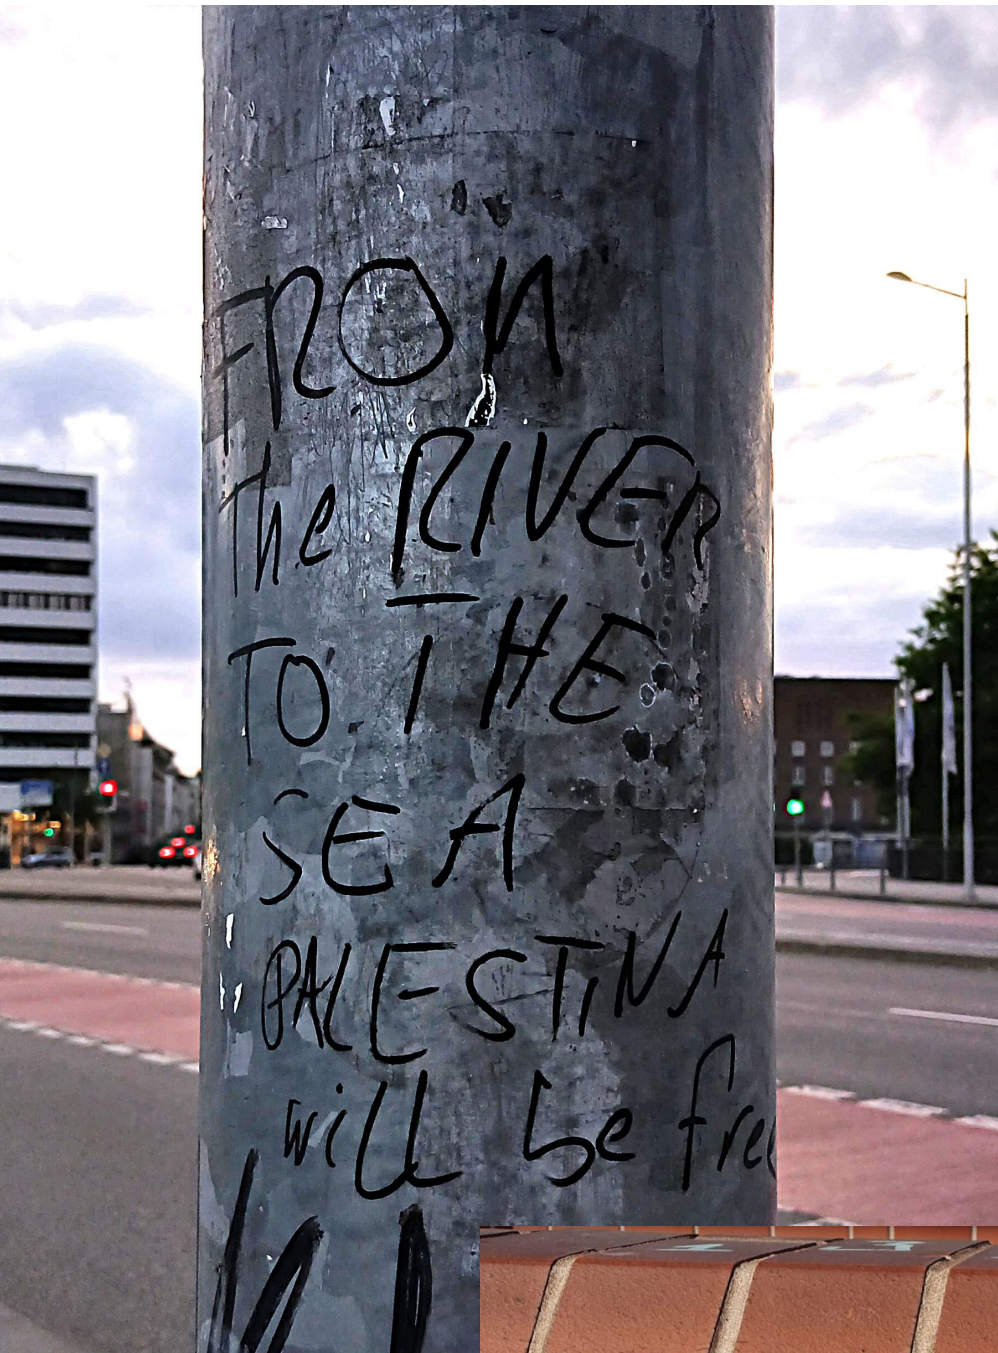 FROM
The RIVER
TO THE
SEA
PALESTINA
will be free